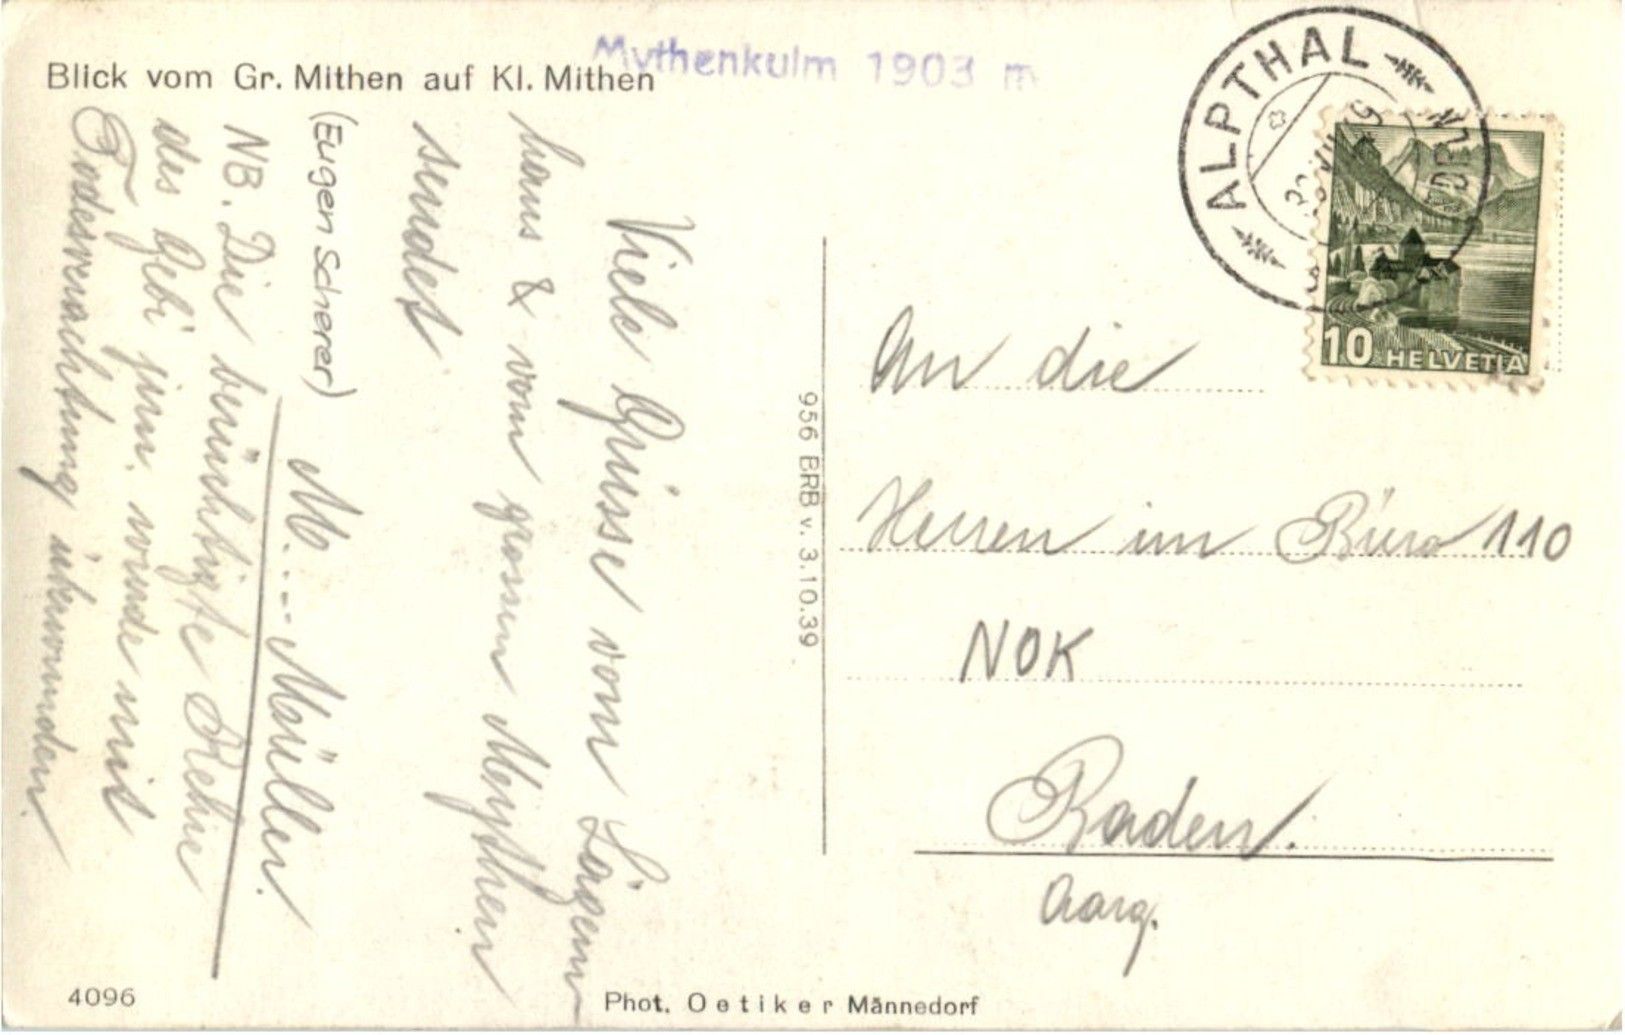 Blick vom Gr. Mithen auf Kl. Mithen
Mythenkulm 1903 m
ALPTHAL
10 HELVETIA
Viele Grüsse vom Lägern
haus & vom grossen Meythen
sendet
M....Müller.
(Eugen Scherer)
NB. Die berüchtigte Kehre
des Gebi jun. wurde mit
Todesverachtung überwunden
956 BRB v. 3.10.39
An die
Herren im Büro 110
NOK
Baden.
Aarg.
4096
Phot. Oetiker Männedorf